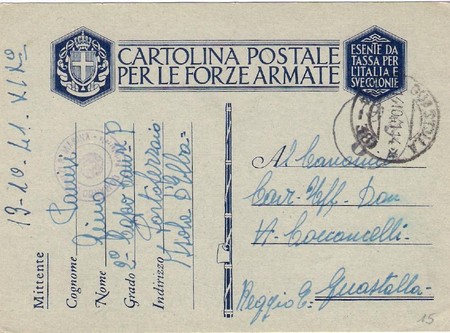 CARTOLINA POSTALE
PER LE FORZE ARMATE
ESENTE DA
TASSA PER
L'ITALIA E
SVE COLONIE
13-10-41-XIX°
Mittente
Cognome
Nome Lino
Grado 2° Capo
Indirizzo Portoferraio
Isola d'Elba
GUASTALLA
Al Canonico
Cav. Uff. Don
Reggio E. Guastalla
15